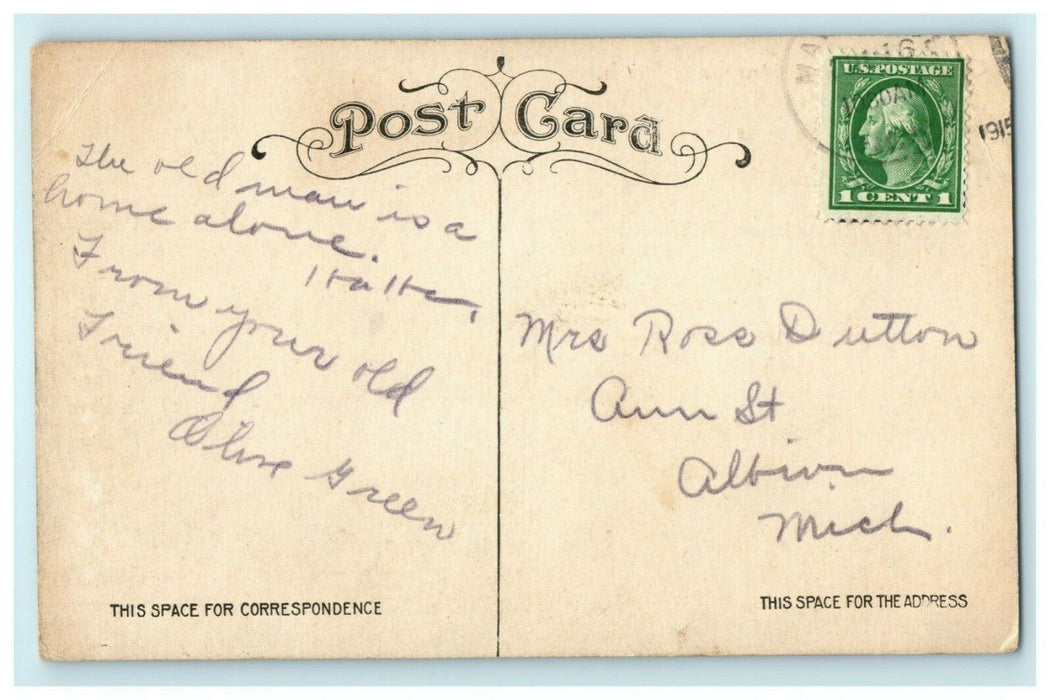 Post Card
U.S. POSTAGE
1 CENT 1
1915
The old man is a
home alone.
Ha Ha,
From your old
Friend
Olive Green
Mrs Ross Dutton
Ann St
Albion
Mich.
THIS SPACE FOR CORRESPONDENCE
THIS SPACE FOR THE ADDRESS